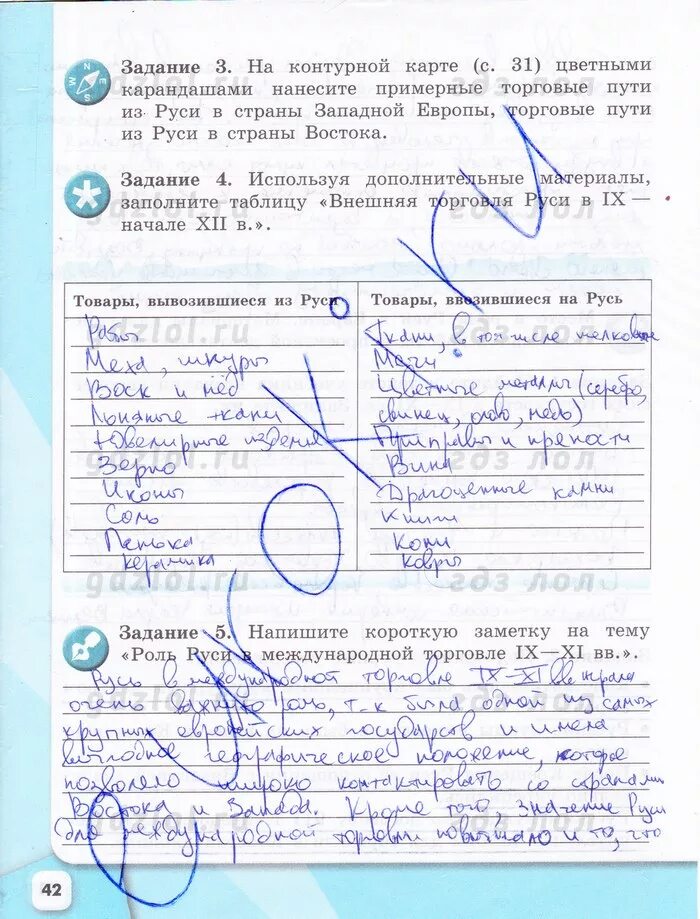 Задание 3. На контурной карте (с. 31) цветными
карандашами нанесите примерные торговые пути
из Руси в страны Западной Европы, торговые пути
из Руси в страны Востока.
Задание 4. Используя дополнительные материалы,
заполните таблицу «Внешняя торговля Руси в IX —
начале XII в.».
Товары, вывозившиеся из Руси
Товары, ввозившиеся на Русь
Рабы
Меха, шкуры
Воск и мёд
Льняные ткани
Ювелирные изделия
Зерно
Иконы
Соль
Пенька
керамика
Ткани, в том числе шелковые
Мечи
Цветные металлы (серебро,
свинец, олово, медь)
Приправы и пряности
Вина
Драгоценные камни
Книги
Кони
ковры
Задание 5. Напишите короткую заметку на тему
«Роль Руси в международной торговле IX—XI вв.».
Русь в международной торговле IX-XI вв играла
очень важную роль, т-к была одной из самых
крупных европейских государств и имела
выгодное географическое положение, которое
позволяло широко контактировать со странами
Востока и Запада. Кроме того, значение Руси
для международной торговли повышало и то, что
42
gdzlol.ru
гдз лол
gdzlol.ru
гдз лол
gdzlol.ru
gdzlol.ru
гдз лол
gdzlol.ru
гдз лол